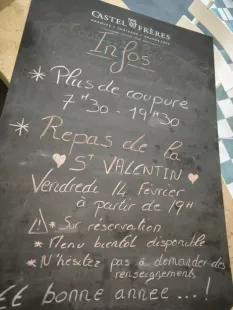 CASTEL FRÈRES
Infos
* Plus de coupure
7h30 - 19h30
* Repas de la
St VALENTIN
Vendredi 14 février
à partir de 19H
! * Sur réservation
* Menu bientôt disponible
* N'hésitez pas à demander des
renseignements
Et bonne année ... !